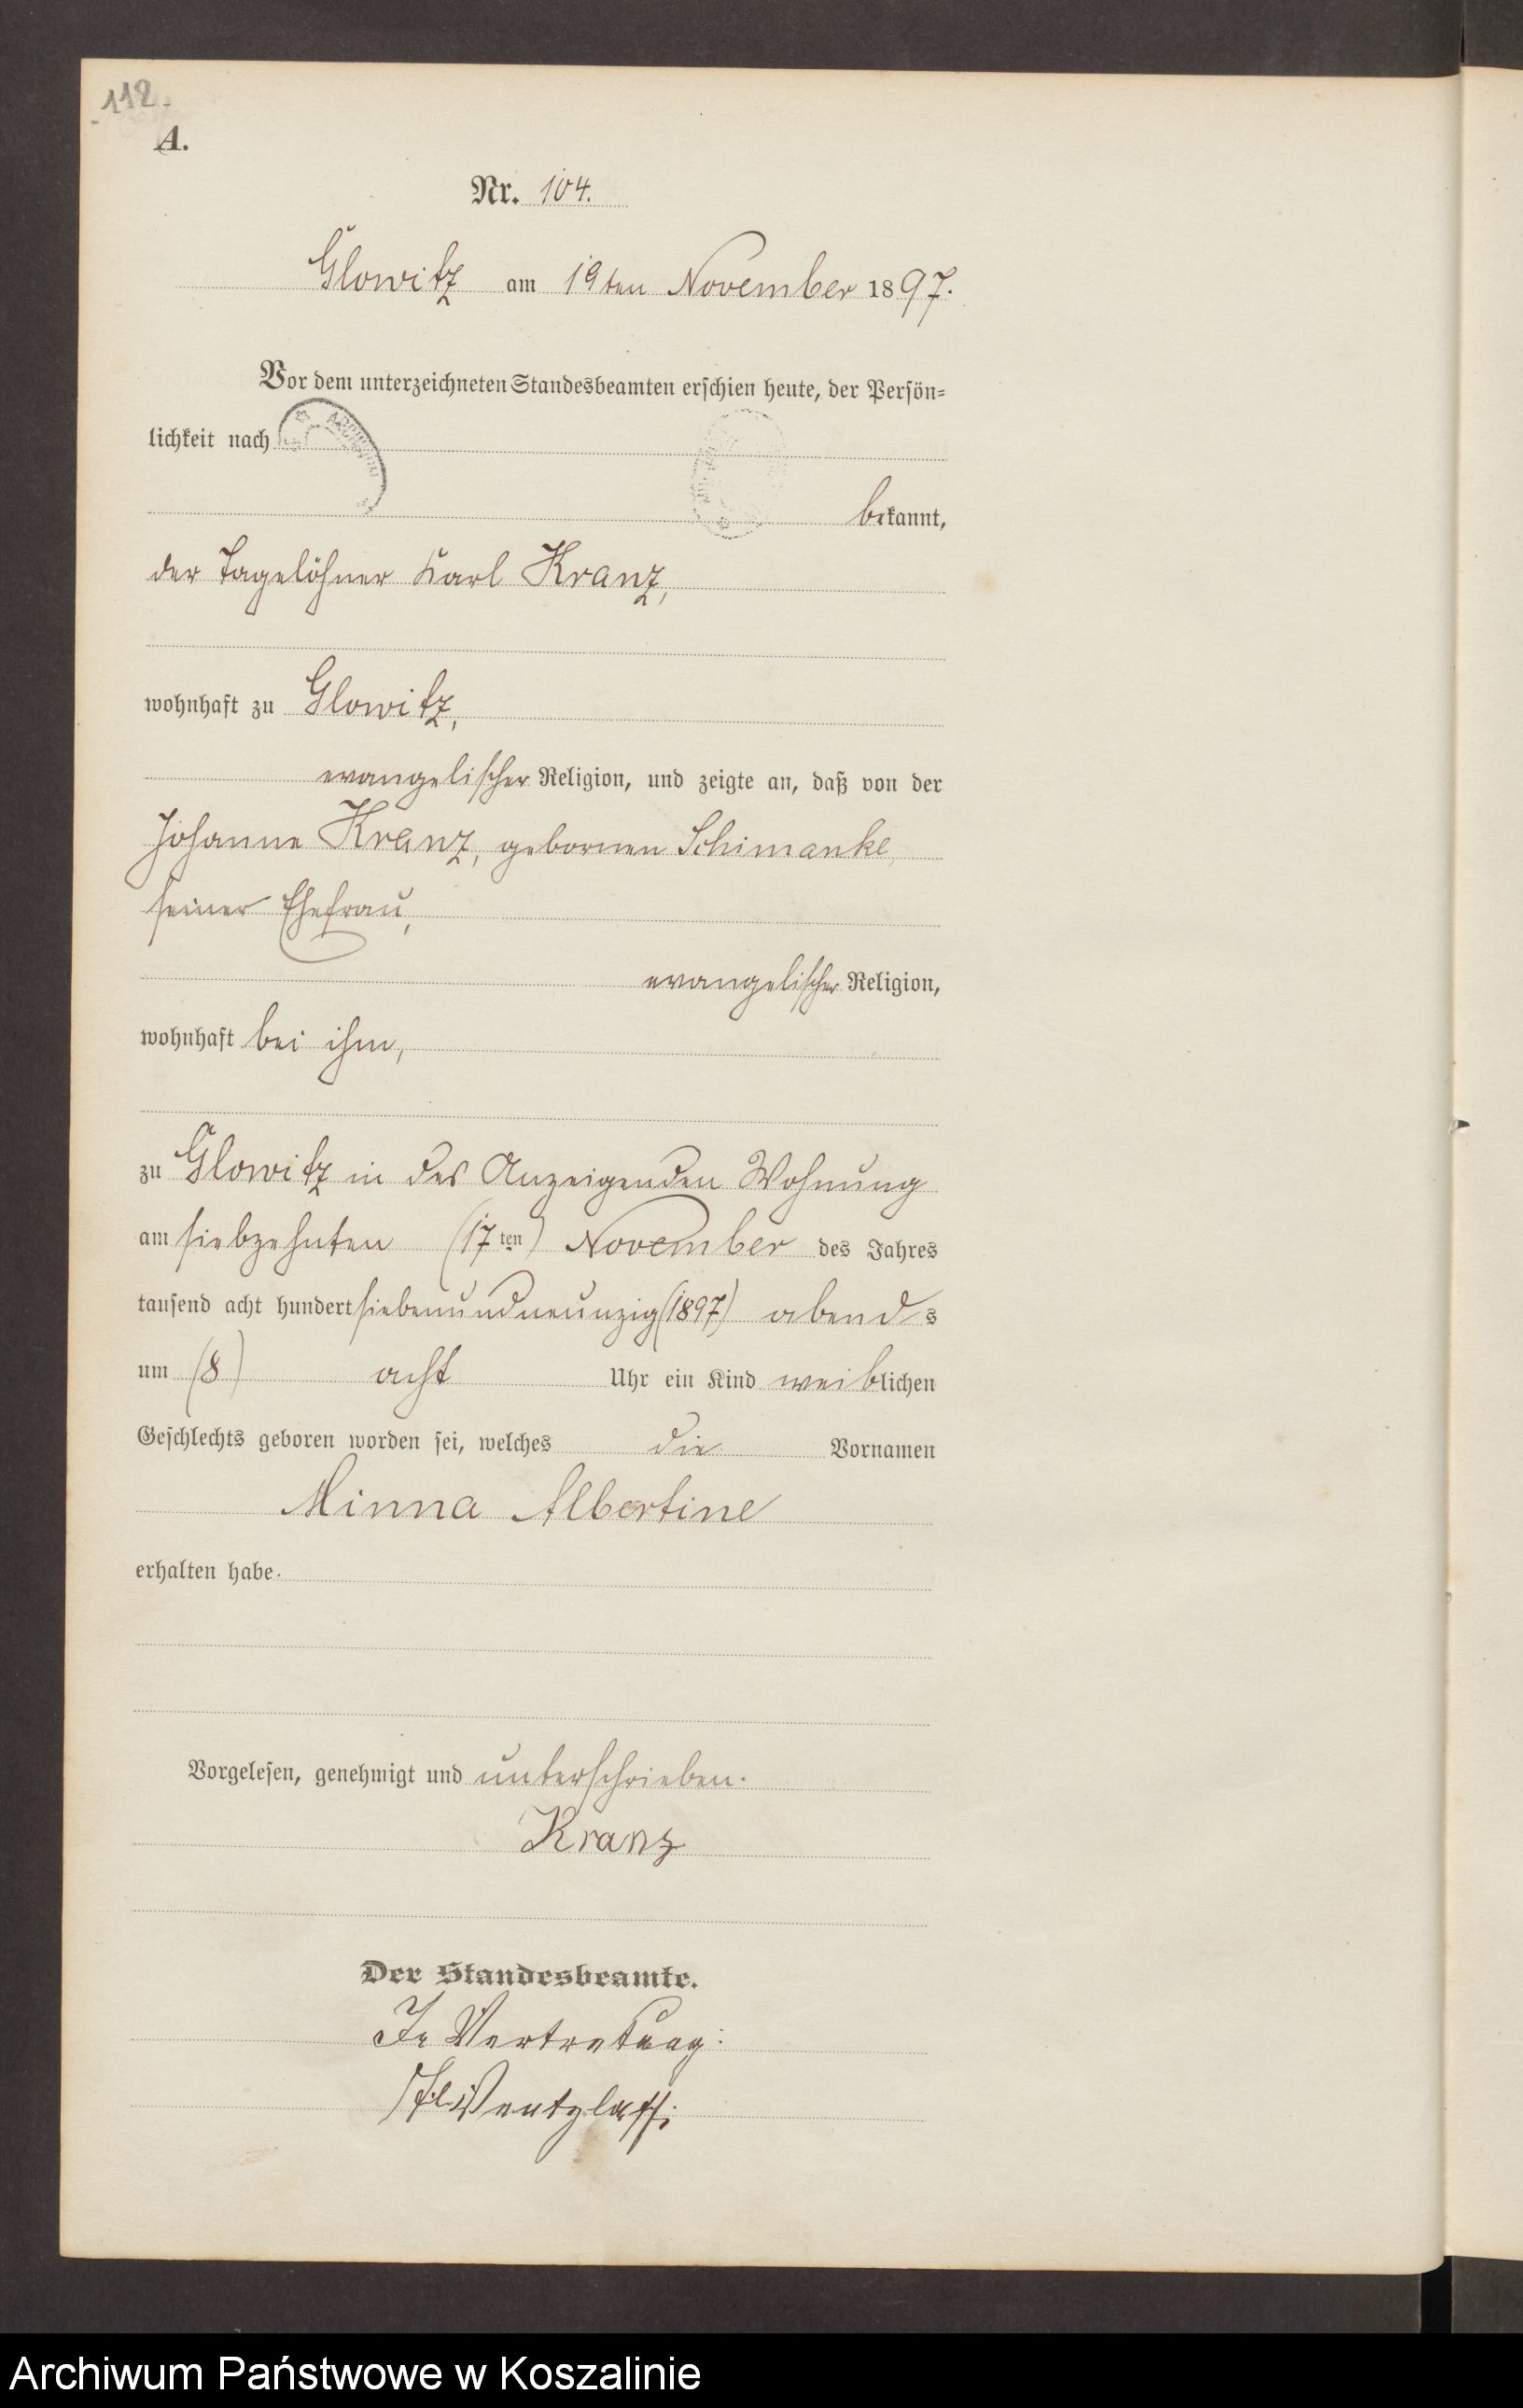 112.
A.
Nr. 104.
Glowitz am 19ten November 1897.
Vor dem unterzeichneten Standesbeamten erschien heute, der Persön=
lichkeit nach
bekannt,
der Tagelöhner Karl Kranz,
wohnhaft zu Glowitz,
evangelischer Religion, und zeigte an, daß von der
Johanne Kranz, gebornen Schimanke,
seiner Ehefrau,
evangelischer Religion,
wohnhaft bei ihm,
zu Glowitz in des Anzeigenden Wohnung
am siebzehnten (17ten) November des Jahres
tausend acht hundert siebenundneunzig (1897) abends
um (8) acht Uhr ein Kind weiblichen
Geschlechts geboren worden sei, welches die Vornamen
Minna Albertine
erhalten habe.
Vorgelesen, genehmigt und unterschrieben.
Kranz
Der Standesbeamte.
In Vertretung:
Wentzlaff
Archiwum Państwowe w Koszalinie